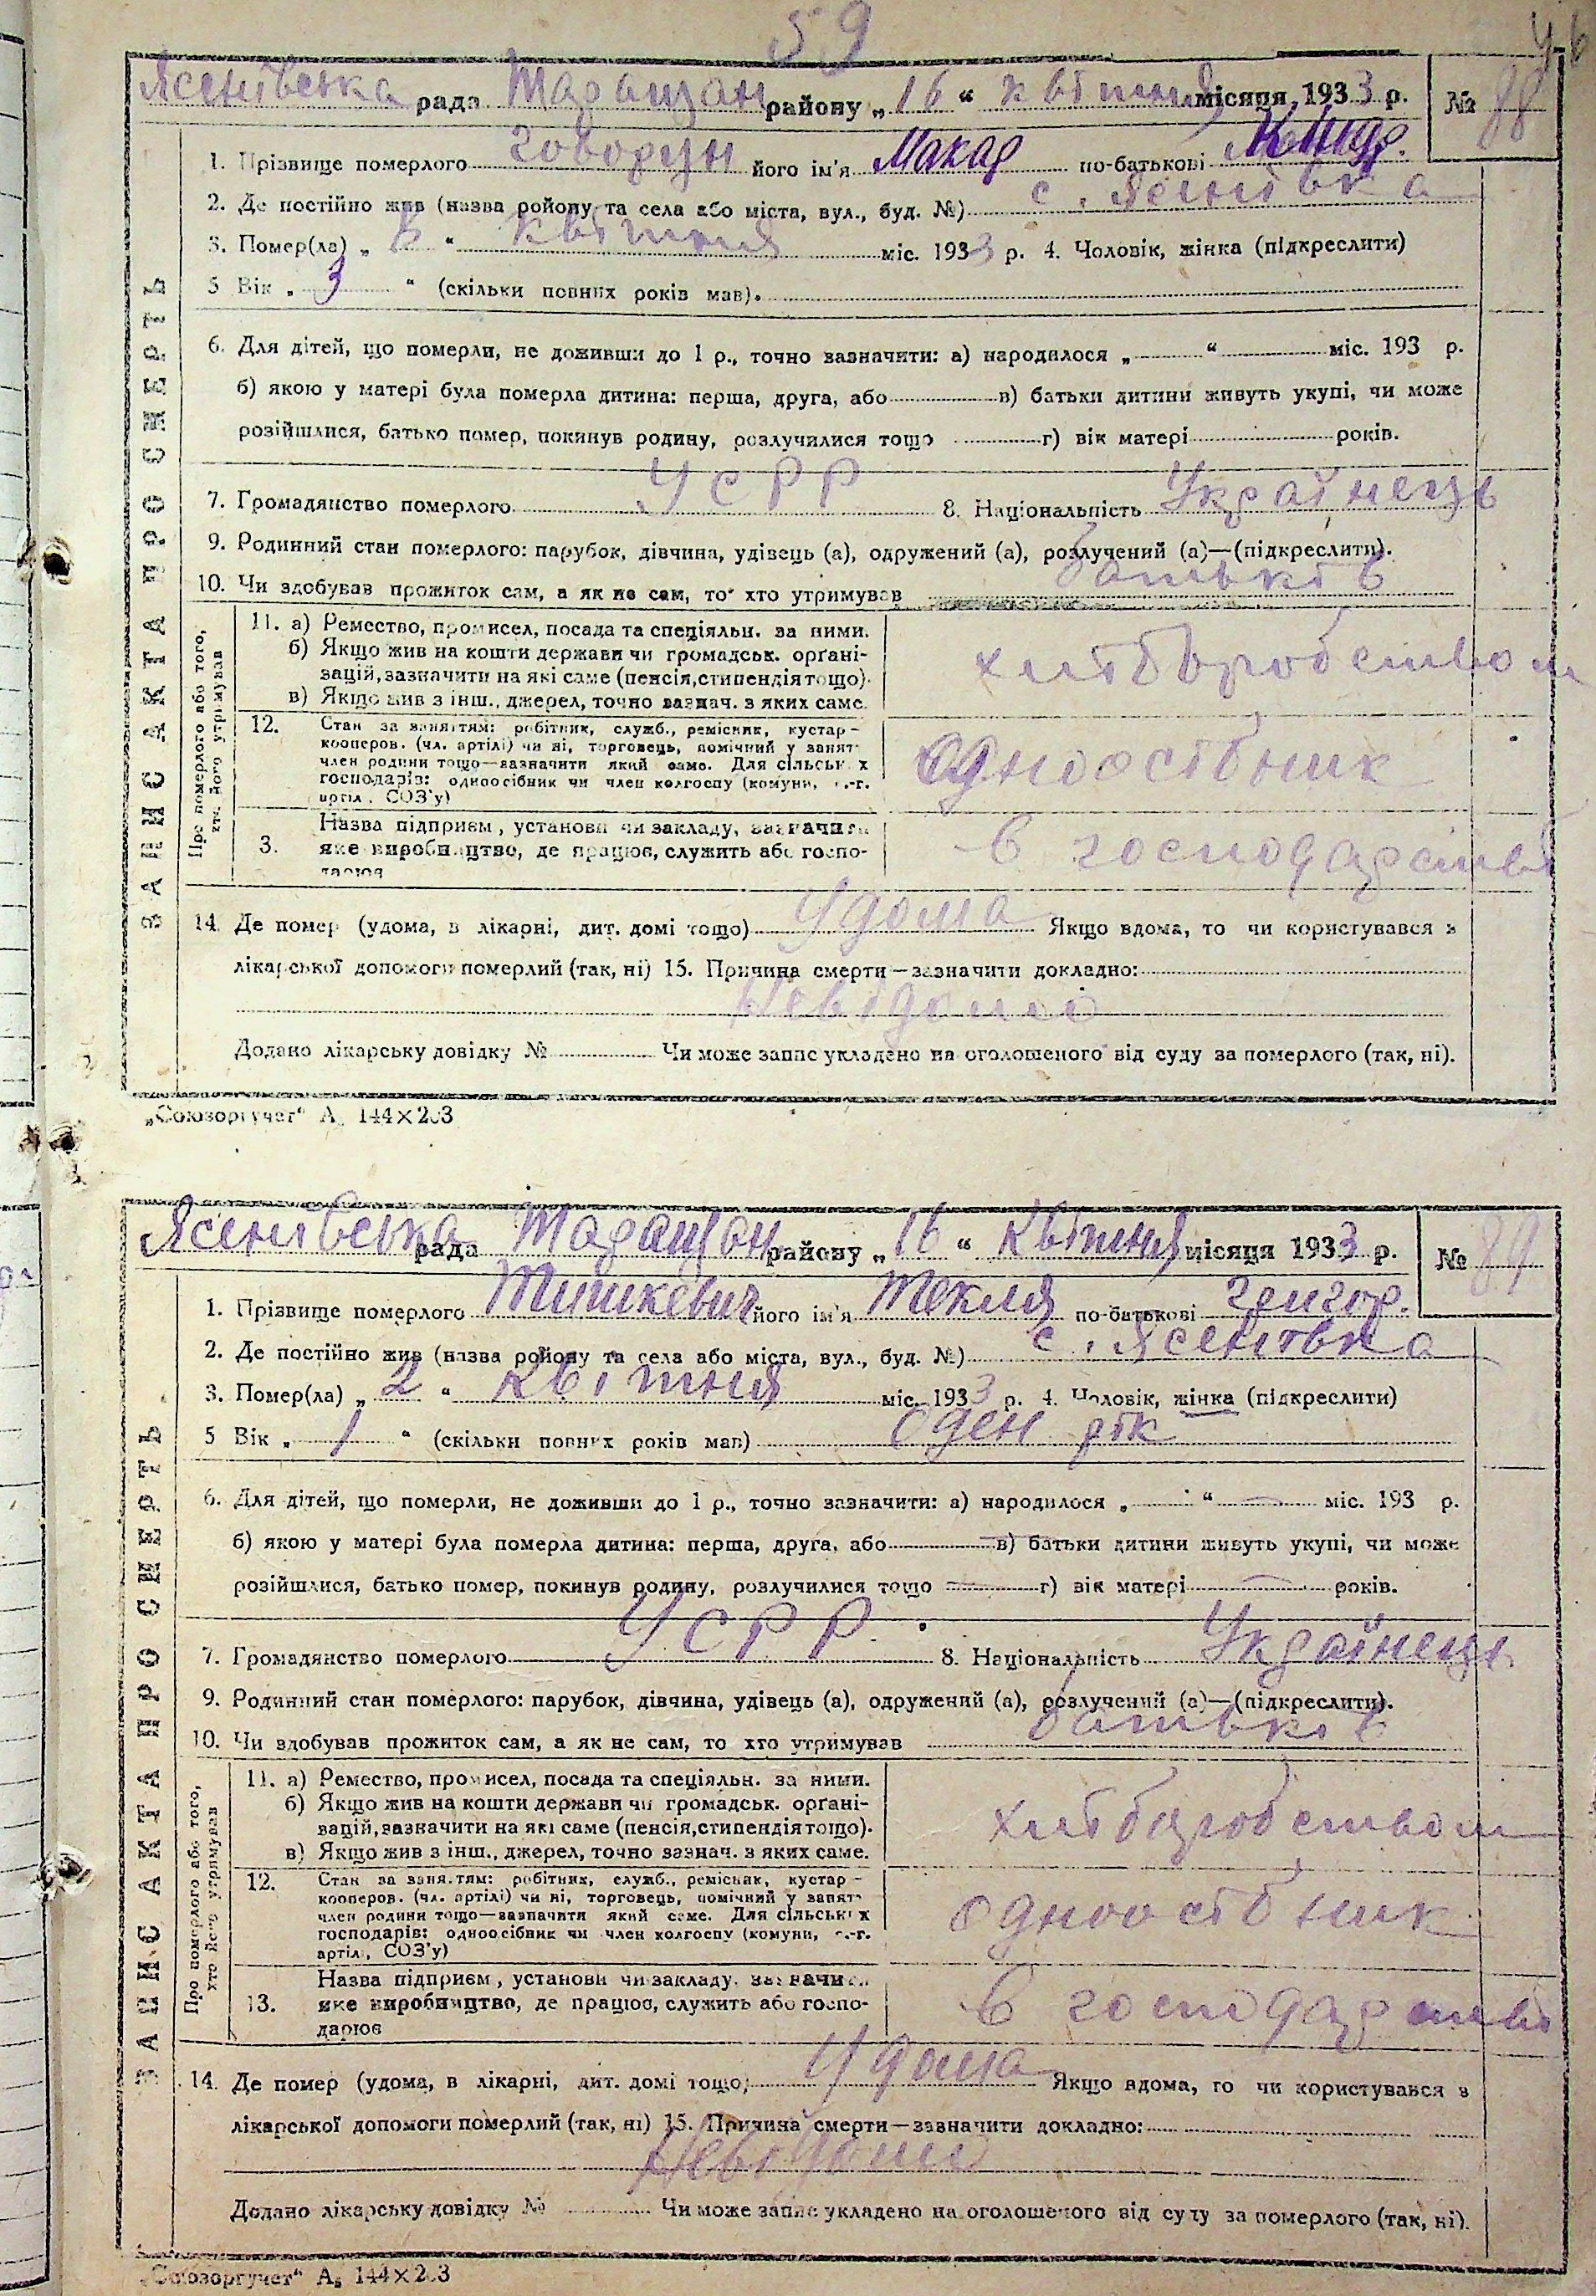 59
Ясенівська рада Таращан району „16“ квітня місяця 1933 р. № 88
1. Прізвище померлого Говорун його ім'я Макар по-батькові
2. Де постійно жив (назва ройону та села або міста, вул., буд. №) с. Ясенівка
3. Помер(ла) „ “ квітня міс. 1933 р. 4. Чоловік, жінка (підкреслити)
5 Вік „ 3 “ (скільки повних років мав).
6. Для дітей, що померли, не доживши до 1 р., точно зазначити: а) народилося „ “ міс. 193 р.
б) якою у матері була померла дитина: перша, друга, або в) батьки дитини живуть укупі, чи може
розійшлися, батько помер, покинув родину, розлучилися тощо г) вік матері років.
7. Громадянство померлого УСРР 8. Національність Українець
9. Родинний стан померлого: парубок, дівчина, удівець (а), одружений (а), розлучений (а)—(підкреслити).
10. Чи здобував прожиток сам, а як не сам, то хто утримував батьків
ЗАПИС АКТА ПРО СМЕРТЬ
Про померлого або того, хто його утримував
11. а) Ремество, промисел, посада та спеціяльн. за ними.
б) Якщо жив на кошти держави чи громадськ. орґані-
зацій, зазначити на які саме (пенсія, стипендія тощо).
в) Якщо жив з інш., джерел, точно зазнач. з яких саме.
хліборобством
12. Стан за заняттям: робітник, служб., ремісник, кустар—
кооперов. (чл. артілі) чи ні, торговець, помічний у занят.
член родини тощо—зазначити який саме. Для сільських
господарів: одноосібник чи член колгоспу (комуни, с.-г.
артіл., СОЗ'у)
одноосібник
Назва підприєм., установи чи закладу, зазначити
3. яке виробництво, де працює, служить або госпо-
дарює
в господарстві
14. Де помер (удома, в лікарні, дит. домі тощо) Удома Якщо вдома, то чи користувався з
лікарської допомоги померлий (так, ні) 15. Причина смерти—зазначити докладно:
Невідомо
Додано лікарську довідку № Чи може запис укладено на оголошеного від суду за померлого (так, ні).
„Союзоргучет“ А₅ 144×203
Ясенівська рада Таращан району „16“ Квітня місяця 1933 р. № 89
1. Прізвище померлого Тишкевич його ім'я Текля по-батькові Григор.
2. Де постійно жив (назва ройону та села або міста, вул., буд. №) с. Ясенівка
3. Помер(ла) „ 2 “ квітня міс. 1933 р. 4. Чоловік, жінка (підкреслити)
5 Вік „ 1 “ (скільки повних років мав) оден рік
6. Для дітей, що померли, не доживши до 1 р., точно зазначити: а) народилося „ “ міс. 193 р.
б) якою у матері була померла дитина: перша, друга, або в) батьки дитини живуть укупі, чи може
розійшлися, батько помер, покинув родину, розлучилися тощо г) вік матері років.
7. Громадянство померлого УСРР 8. Національність Українець
9. Родинний стан померлого: парубок, дівчина, удівець (а), одружений (а), розлучений (а)—(підкреслити).
10. Чи здобував прожиток сам, а як не сам, то хто утримував батьків
ЗАПИС АКТА ПРО СМЕРТЬ
Про померлого або того, хто його утримував
11. а) Ремество, промисел, посада та спеціяльн. за ними.
б) Якщо жив на кошти держави чи громадськ. орґані-
зацій, зазначити на які саме (пенсія, стипендія тощо).
в) Якщо жив з інш., джерел, точно зазнач. з яких саме.
хліборобством
12. Стан за заняттям: робітник, служб., ремісник, кустар—
кооперов. (чл. артілі) чи ні, торговець, помічний у занят.
член родини тощо—зазначити який саме. Для сільських
господарів: одноосібник чи член колгоспу (комуни, с.-г.
артіл., СОЗ'у)
одноосібник
Назва підприєм., установи чи закладу, зазначити
13. яке виробництво, де працює, служить або госпо-
дарює
в господарстві
14. Де помер (удома, в лікарні, дит. домі тощо) Удома Якщо вдома, то чи користувався з
лікарської допомоги померлий (так, ні) 15. Причина смерти—зазначити докладно:
Невідомо
Додано лікарську довідку № Чи може запис укладено на оголошеного від суду за померлого (так, ні).
„Союзоргучет“ А₅ 144×203